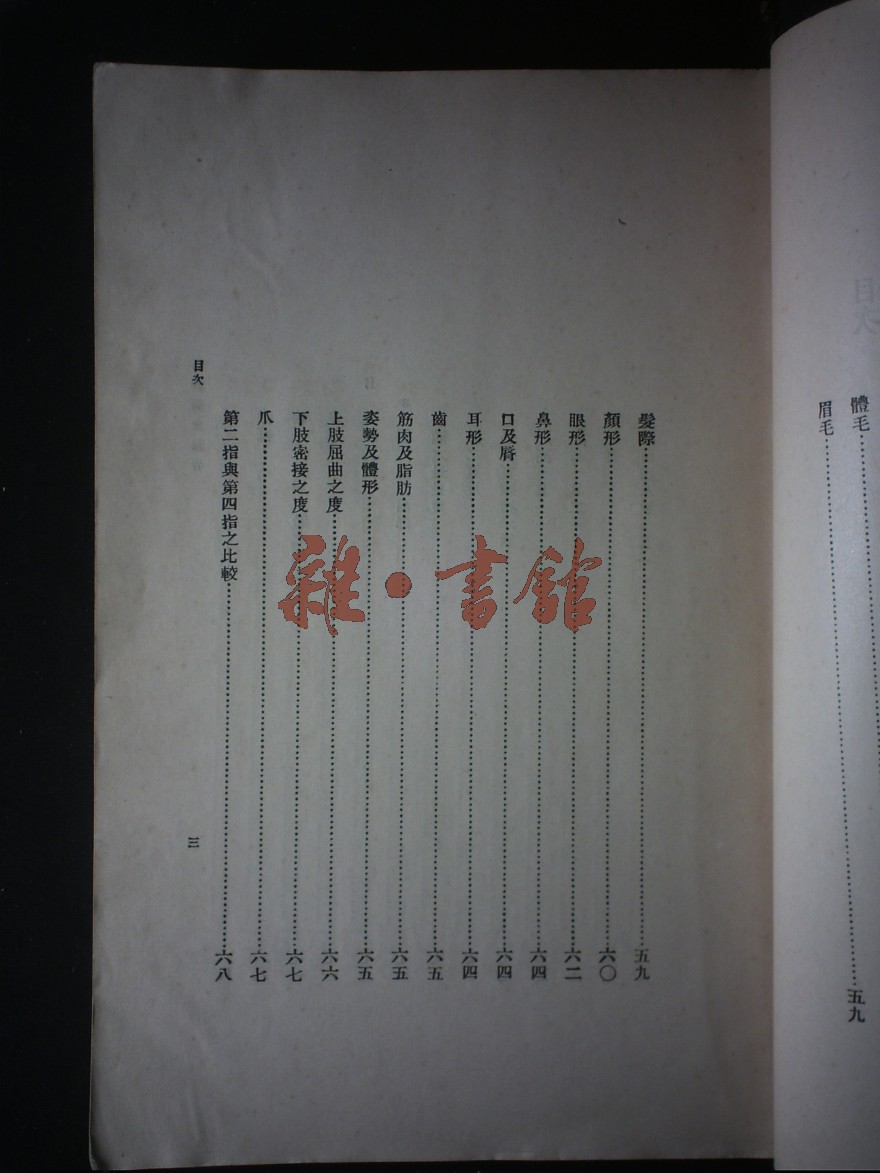 體毛
眉毛……五九
髮際……五九
顏形……六〇
眼形……六二
鼻形……六四
口及唇……六四
耳形……六四
齒……六五
筋肉及脂肪……六五
姿勢及體形……六五
上肢屈曲之度……六六
下肢密接之度……六七
爪……六七
第二指與第四指之比較……六八
目次
三
雜·書館